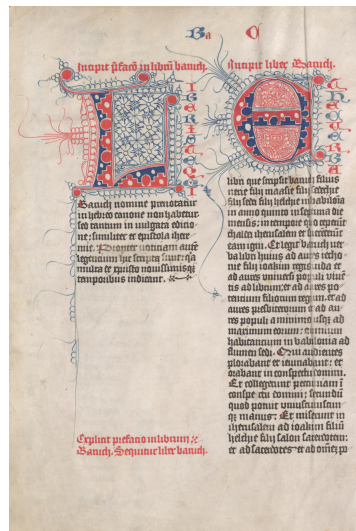 Ba
Incipit p̄faco in librū baruch.
LIBER ISTE QUI
Baruch nomine prenotatur
in hebreo canone non habetur
sed tantum in vulgata editio
ne; similiter et epistola ihere
mie. Propter noticiam autē
legencium hic scripta sunt: q̄a
multa de xpristo novissimisq̄
temporibus indicant.
Explicit prefacio in librum
Baruch. Sequitur liber baruch.
Incipit liber Baruch.
ET HEC VERBA
libri que scripsit baruch filius
nerie filij maasie filij sedechie
filij sedei filij helchie in babilōia
in anno quinto in septima die
mensis: in tempore quo ceperūt
chaldei iherusalem et succenderūt
eam igni. Et legit baruch ver
ba libri huius ad aures iecho
nie filij ioakim regis iuda et
ad aures universi populi veniē
tis ad librum: et ad aures po
tencium filiorum regum. et ad
aures presbiterorum et ad au
res populi a minimo usq̄ ad
maximum eorum: omnium
habitancium in babilonia ad
flumen sodi. Qui audientes
plorabant et ieiunabant: et
orabant in conspectu domini.
Et collegerunt pecuniam ī
conspectu domini: secundū
quod potuit uniuscuiusq̄
manus: Et miserunt in
iherusalem ad ioakim filiū
helchie filij salon sacerdotem:
et ad sacerdotes et ad omnē po